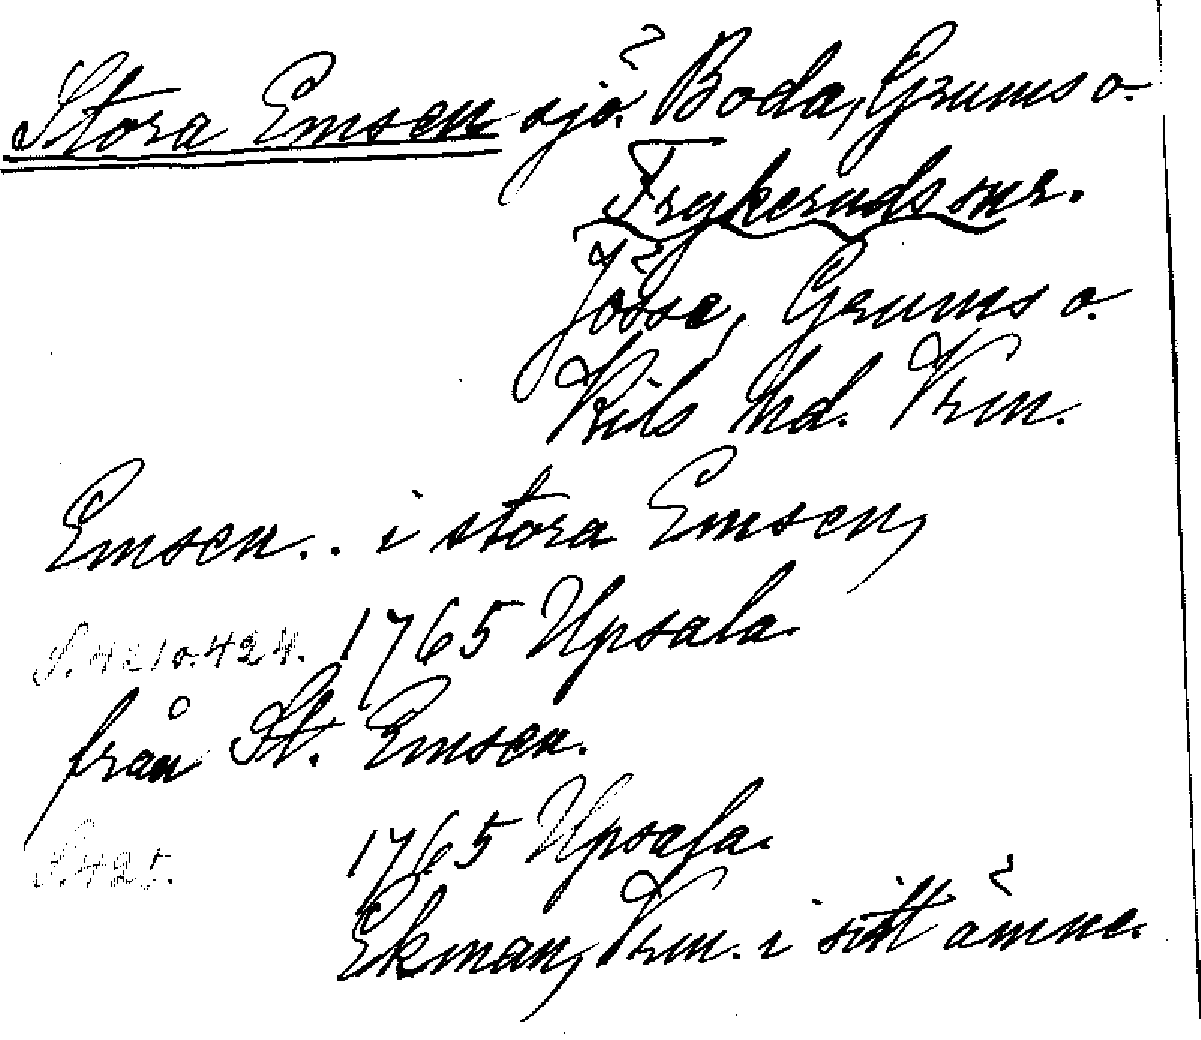 Stora Emsen sjö. Boda, Grums o.
Frykeruds snr.
Jösse, Grums o.
Kils hd. Vrm.
Emsen . . i stora Emsen,
S. 421 o. 424. 1765 Upsala.
från St. Emsen.
S. 425. 1765 Upsala.
Ekman, Vrm. i sitt ämne.